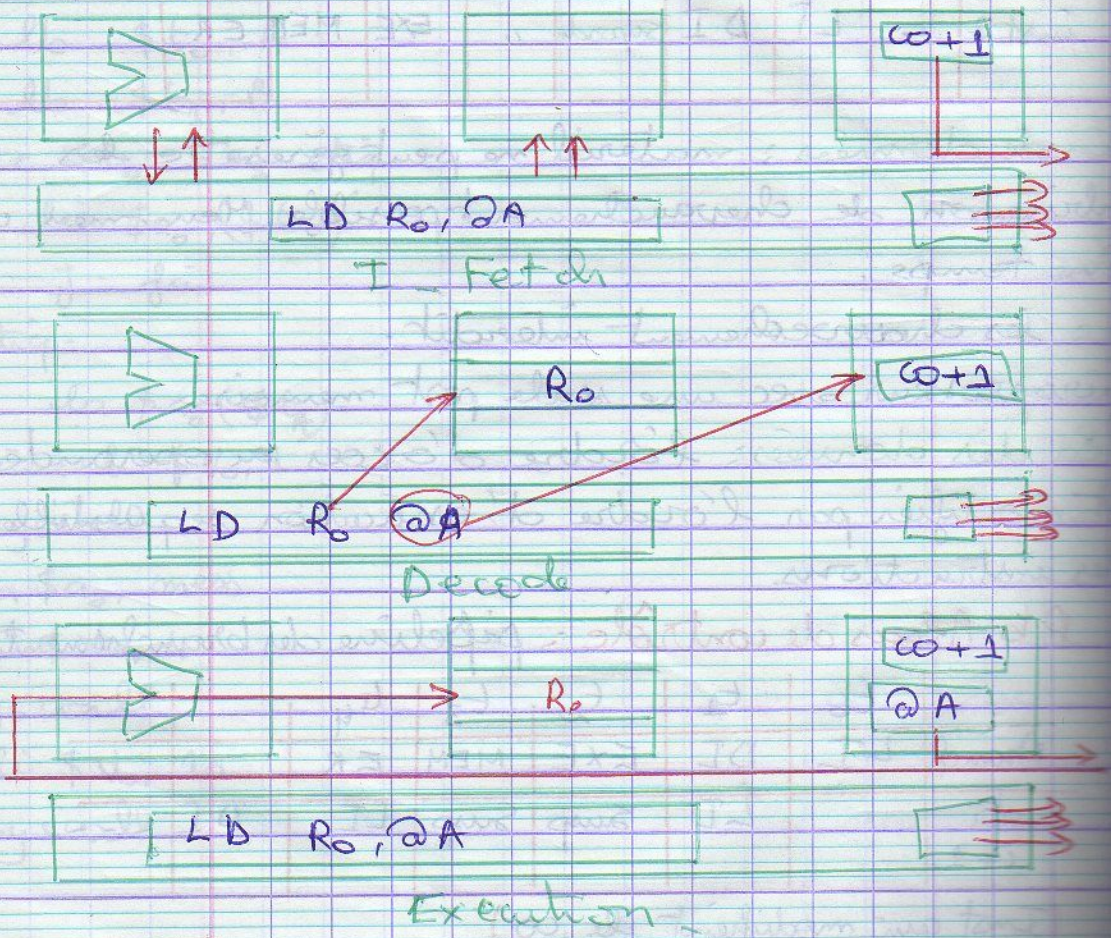 CO+1
LD R0, @A
I_Fetch
R0
CO+1
LD R0 @A
Decode
CO+1
R0
@A
LD R0, @A
Execution